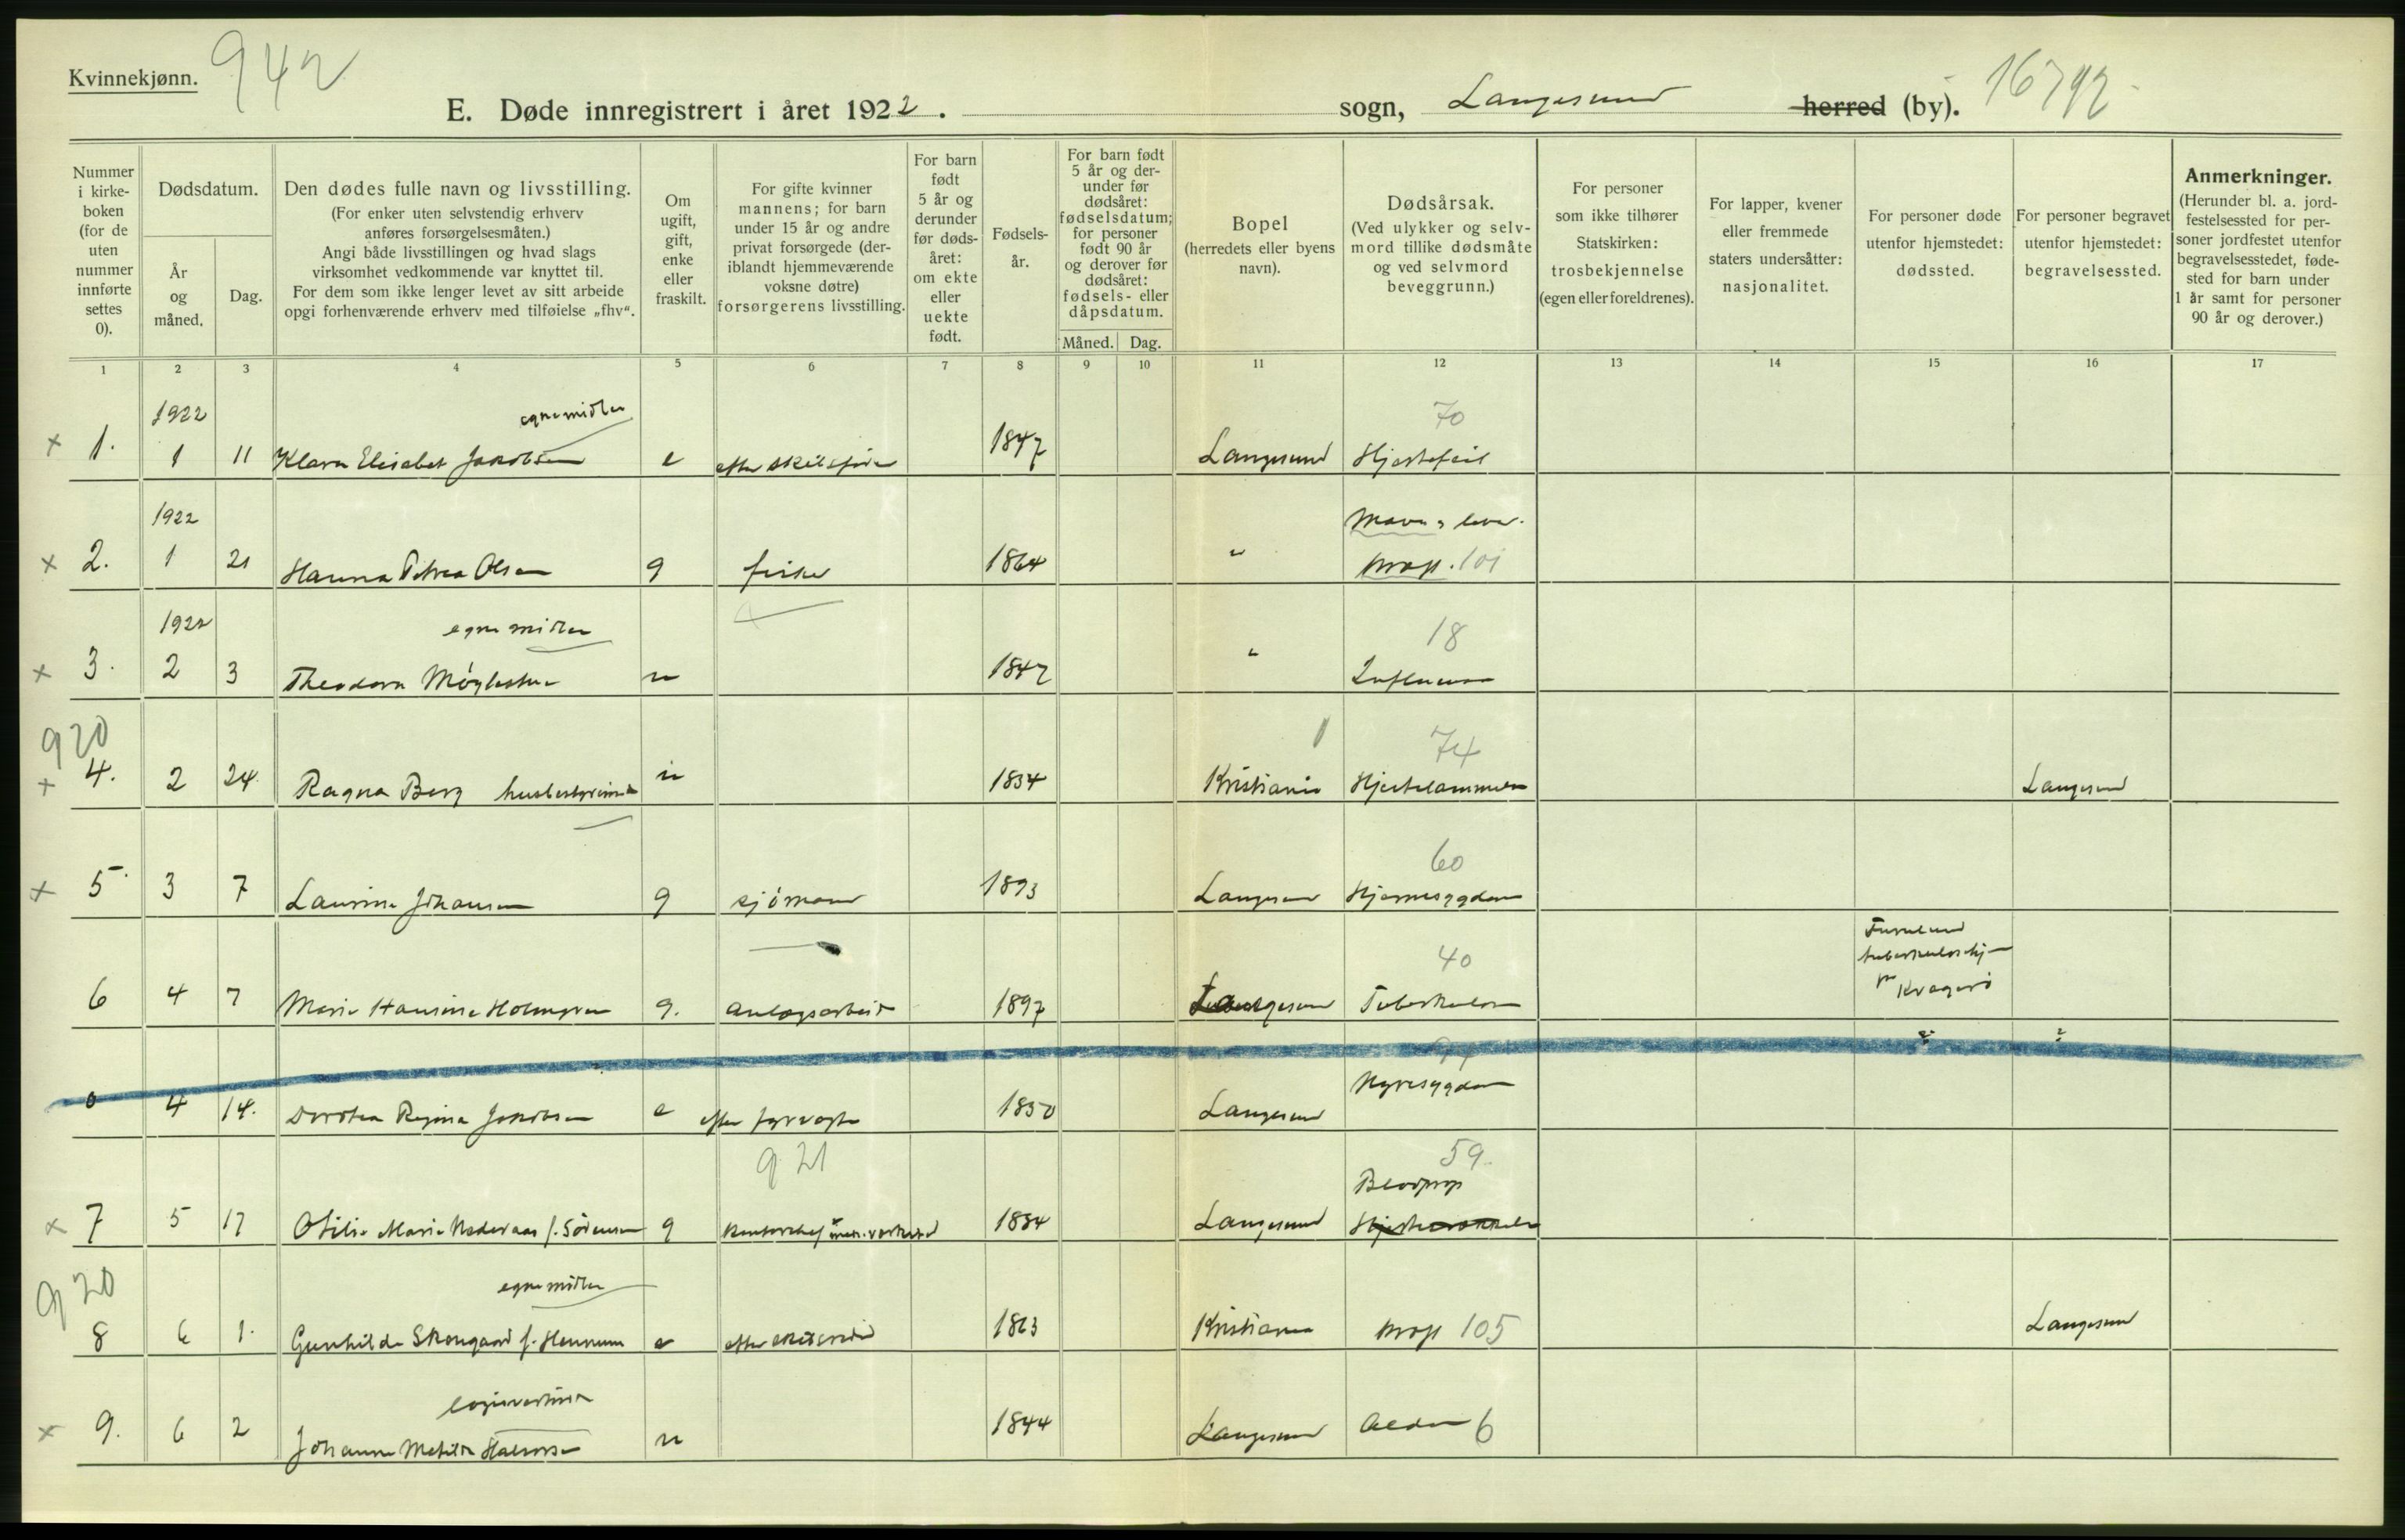 Kvinnekjønn. 942
E. Døde innregistrert i året 1922. sogn, Langesund herred (by). 16792
Nummer i kirkeboken (for de uten nummer innførte settes 0).
Dødsdatum.
År og måned.
Dag.
Den dødes fulle navn og livsstilling.
(For enker uten selvstendig erhverv
anføres forsørgelsesmåten.)
Angi både livsstillingen og hvad slags
virksomhet vedkommende var knyttet til.
For dem som ikke lenger levet av sitt arbeide
opgi forhenværende erhverv med tilføielse „fhv“.
Om
ugift,
gift,
enke
eller
fraskilt.
For gifte kvinner
mannens; for barn
under 15 år og andre
privat forsørgede (der-
iblandt hjemmeværende
voksne døtre)
forsørgerens livsstilling.
For barn
født
5 år og
derunder
før døds-
året:
om ekte
eller
uekte
født.
Fødsels-
år.
For barn født
5 år og der-
under før
dødsåret:
fødselsdatum;
for personer
født 90 år
og derover før
dødsåret:
fødsels- eller
dåpsdatum.
Måned. Dag.
Bopel
(herredets eller byens
navn).
Dødsårsak.
(Ved ulykker og selv-
mord tillike dødsmåte
og ved selvmord
beveggrunn.)
For personer
som ikke tilhører
Statskirken:
trosbekjennelse
(egen eller foreldrenes).
For lapper, kvener
eller fremmede
staters undersåtter:
nasjonalitet.
For personer døde
utenfor hjemstedet:
dødssted.
For personer begravet
utenfor hjemstedet:
begravelsessted.
Anmerkninger.
(Herunder bl. a. jord-
festelsessted for per-
soner jordfestet utenfor
begravelsesstedet, føde-
sted for barn under
1 år samt for personer
90 år og derover.)
1 2 3 4 5 6 7 8 9 10 11 12 13 14 15 16 17
1922 egne midler 70
× 1. 1 11 Klara Elisabet Jakobsen e efter 1847 Langesund Hjertefeil
1922 Mave og lever
× 2. 1 21 Hanna Petrea Olsen g fisker 1864 " 101
1922 egne midler 18
× 3. 2 3 Theodora u 1847 " Influensa
920 74
× 4. 2 24 Ragna Berg husbestyrerinde u 1854 Kristiania Hjertelammelse Langesund
60
× 5. 3 7 Laurine Johansen g sjømann 1893 Langesund Hjernesygdom
40
6 4 7 Marie Hansine Holmgren g. anlegsarbeider 1897 Langesund Tuberkulose Furulund
tuberkulosehj
pr Kragerø
0 4 14. Dorothea Regine Jakobsen e efter fyrvogter 1850 Langesund Nyresygdom
921 59.
Blodprop
× 7 5 17 Otilie Marie f. Sørensen g kontorchef mek. verksted 1854 Langesund
920 egne midler
8 6 1. Gunhilde f. e efter 1863 Kristiania 105 Langesund
× 9. 6 2 Johanne Matilde Halvorsen u 1844 Langesund Alderdom 6